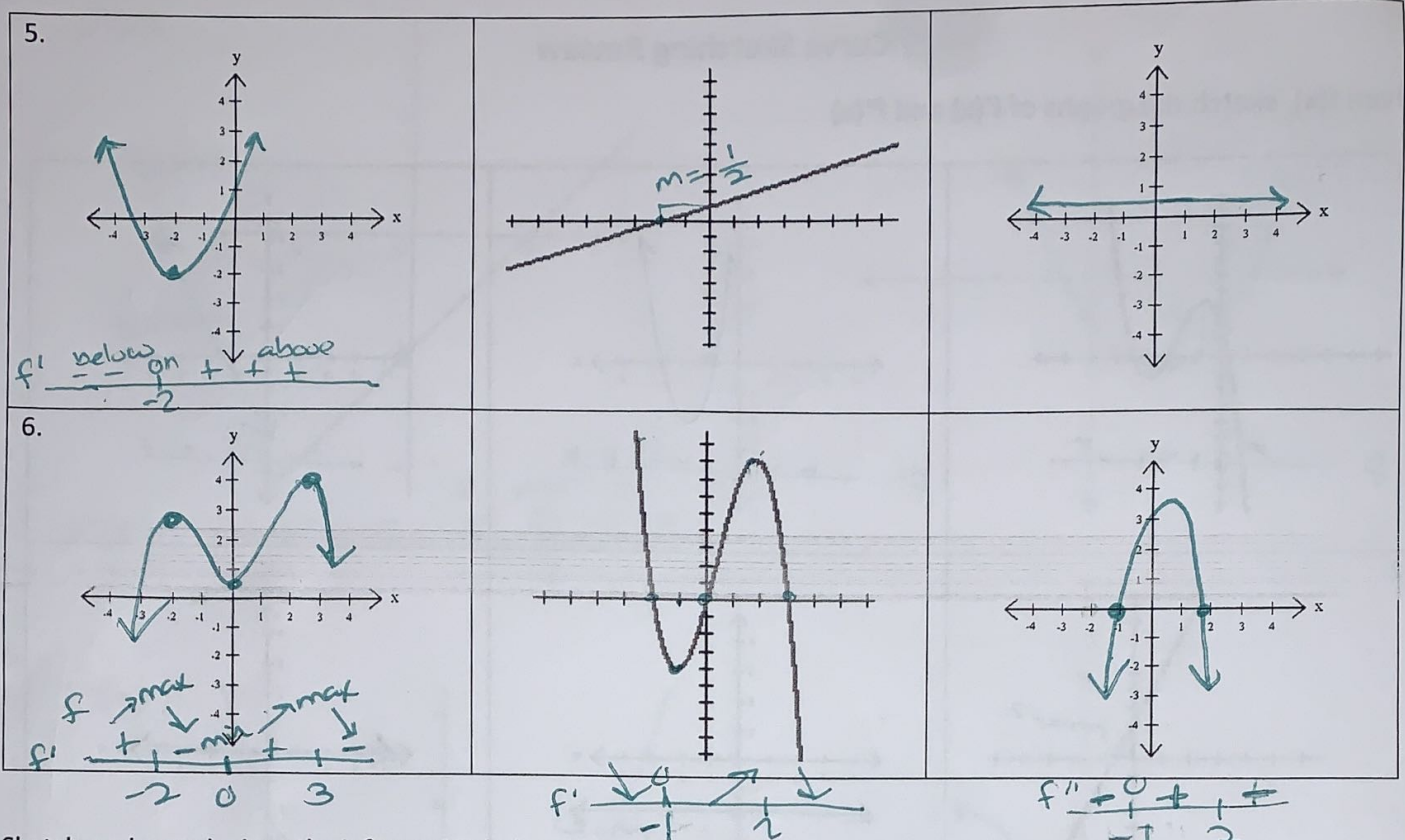 5.
y
4
3
2
1
x
-4 -3 -2 -1 1 2 3 4
-1
-2
-3
-4
f' - below - on + + above +
-2
m = 1/2
y
4
3
2
1
x
-4 -3 -2 -1 1 2 3 4
-1
-2
-3
-4
6.
y
4
3
2
x
-4 -3 -2 -1 1 2 3 4
-1
-2
-3
-4
f max max
f' + - min + -
-2 0 3
f' 0
-1 2
y
4
3
2
1
x
-4 -3 -2 -1 1 2 3 4
-1
-2
-3
-4
f'' 0
-1 2